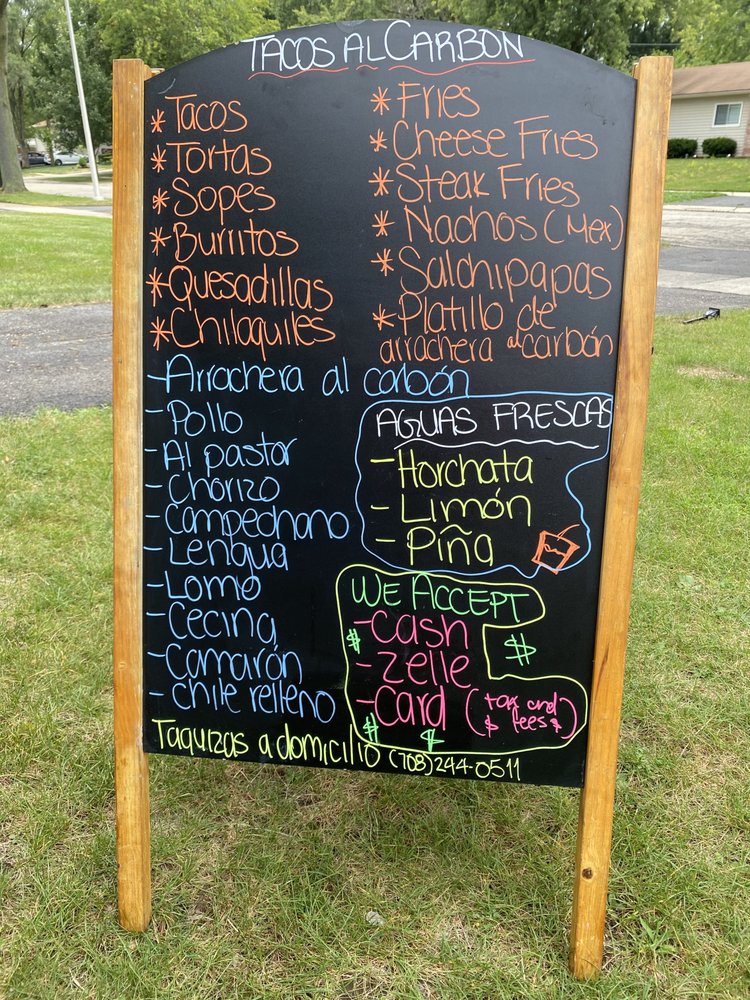 TACOS AL CARBÓN
* Tacos
* Tortas
* Sopes
* Burritos
* Quesadillas
* Chilaquiles
* Fries
* Cheese Fries
* Steak Fries
* Nachos (Mex)
* Salchipapas
* Platillo de
arrachera al carbón
- Arrachera al carbón
- Pollo
- Al pastor
- Chorizo
- Campechano
- Lengua
- Lomo
- Cecina
- Camarón
- chile relleno
AGUAS FRESCAS
- Horchata
- Limón
- Piña
WE ACCEPT
- Cash
$
- Zelle
$
- Card (tax and
$ fees $)
$ $
Taquizas a domicilio (708)244-0511